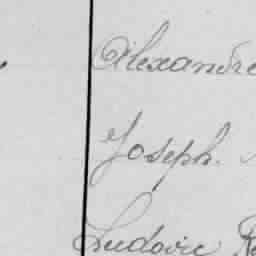 Alexandre
Joseph.
Ludovic